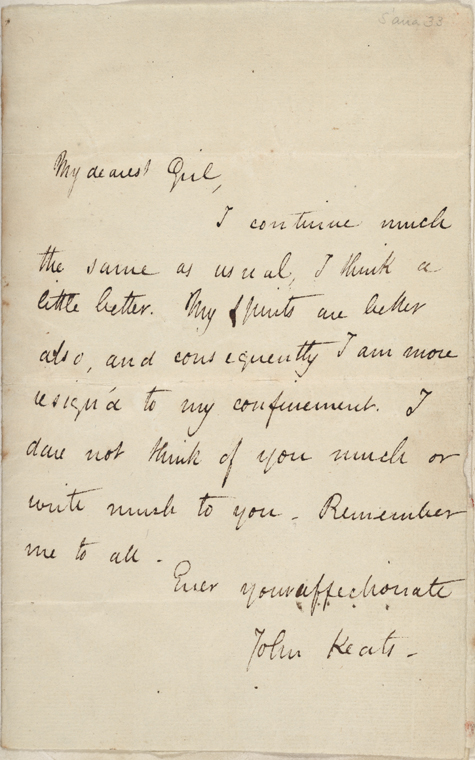 S'ana 33
My dearest Girl,
I continue much
the same as usual, I think a
little better. My spirits are better
also, and consequently I am more
resign'd to my confinement. I
dare not think of you much or
write much to you - Remember
me to all -
Ever your affectionate
John Keats -